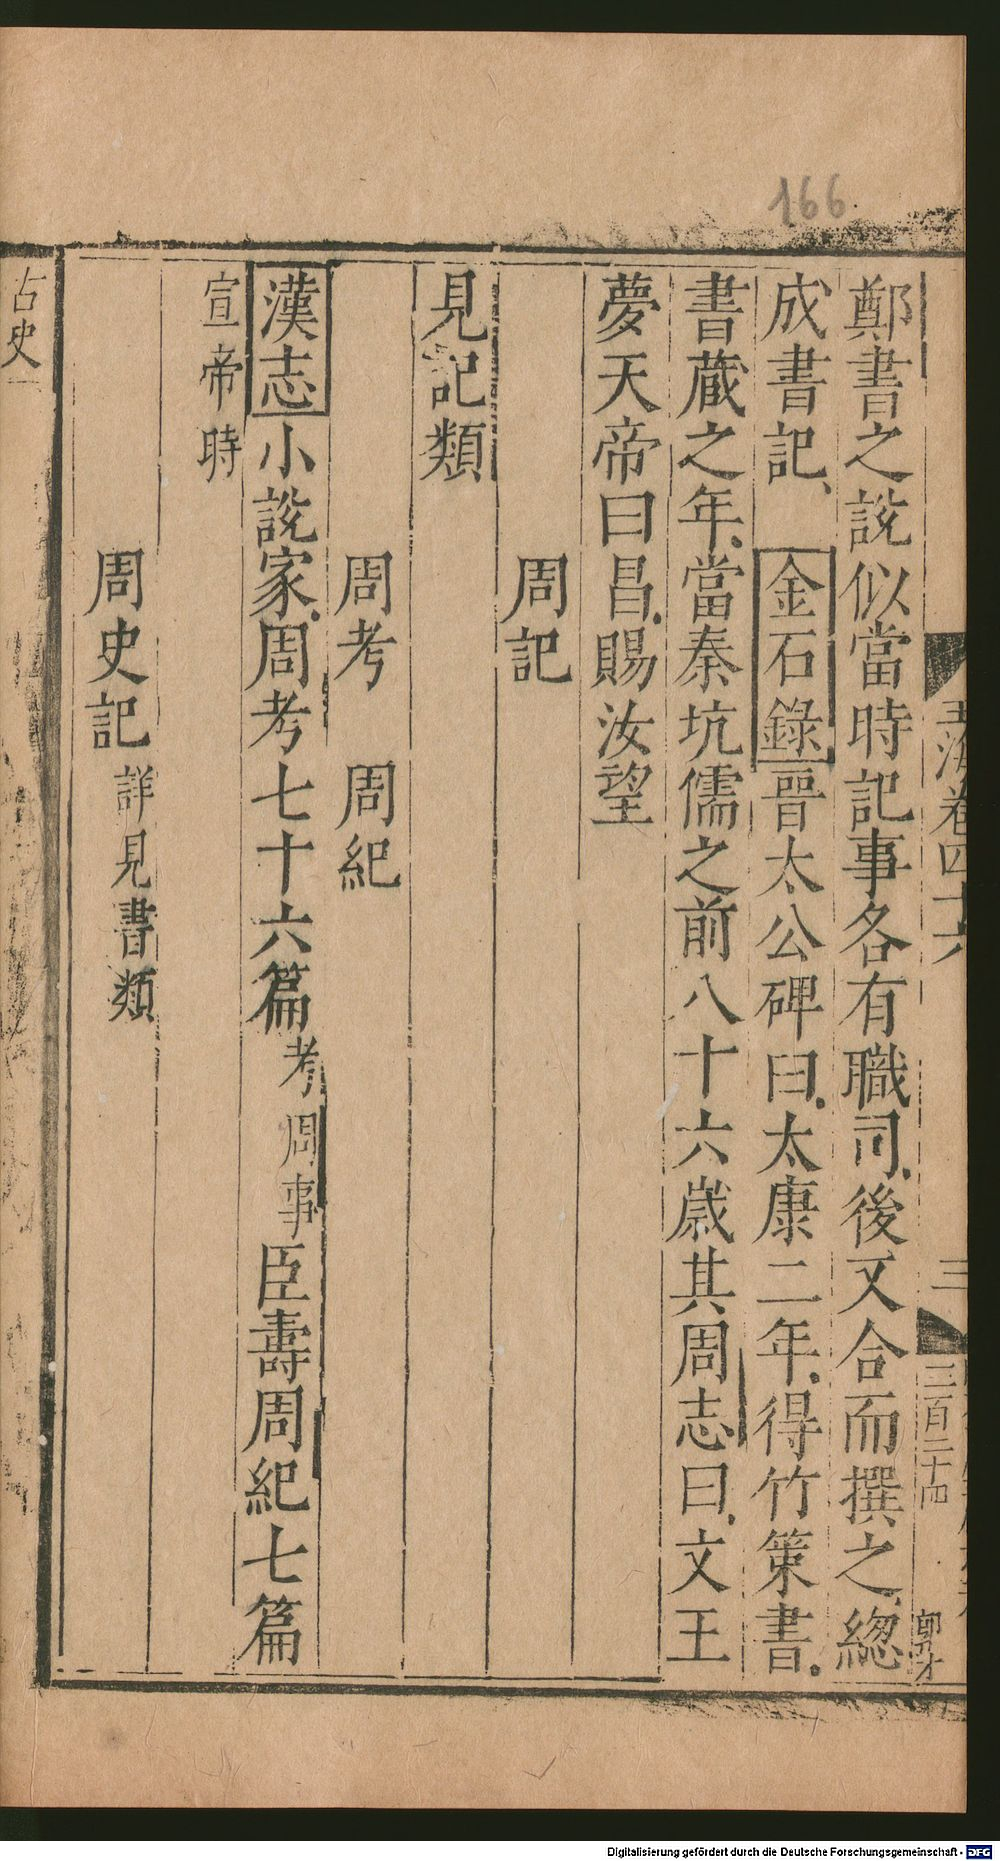 166
玉海卷四十六
三
三百二十四
鄭書之說似當時記事各有職司後又合而撰之總
成書記　金石錄晉太公碑曰太康二年得竹策書
書藏之年當秦坑儒之前八十六歲其周志曰文王
夢天帝曰昌賜汝望
周記
見記類
周考　周紀
漢志小說家周考七十六篇考周事臣壽周紀七篇
宣帝時
周史記詳見書類
古史
Digitalisierung gefördert durch die Deutsche Forschungsgemeinschaft - DFG